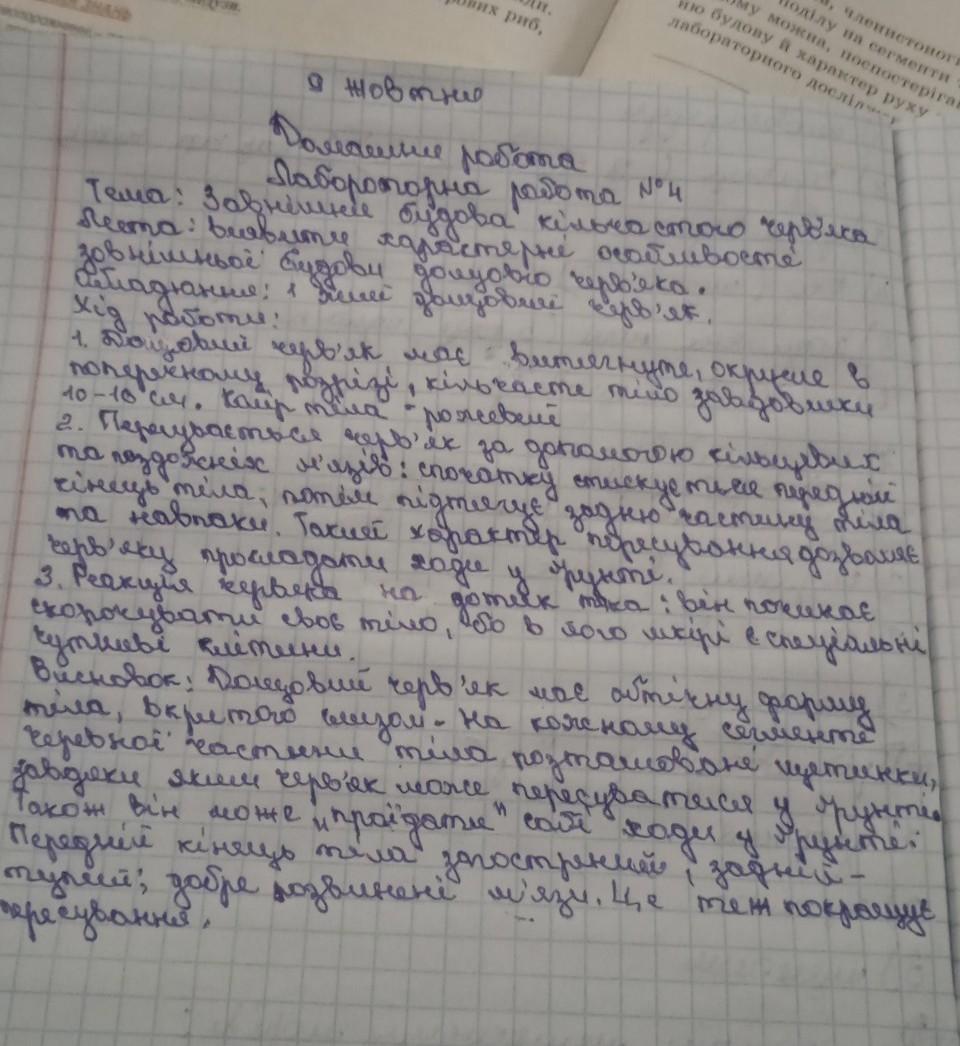 ових риб,
членистоноги
поділу на сегменти
можна, поспостеріга
ню будову й характер руху
лабораторного дослідж
9 жовтня
Домашня робота
Лабороторна робота №4
Тема: Зовнішня будова кільчастого черв'яка
Мета: виявити характерні особливості
зовнішньої будови дощового черв'яка.
Обладнання: 1 живий дощовий черв'як.
Хід роботи:
1. Дощовий черв'як має витягнуте, округле в
поперечному розрізі, кільчасте тіло завдовжки
10-18 см. Колір тіла - рожевий
2. Пересувається черв'як за допомогою кільцевих
та поздожніх м'язів: спочатку стискується передній
кінець тіла, потім підтягує задню частину тіла
та навпаки. Такий характер пересування дозволяє
черв'яку прокладати ходи у ґрунті.
3. Реакція червяка на дотик така: він починає
скорочувати своє тіло, бо в його шкірі є спеціальні
чутливі клітини.
Висновок: Дощовий черв'як має обтічну форму
тіла, вкритого слизом. На кожному сегменті
черевної частини тіла розташовані щетинки,
завдяки яким черв'як може пересуватися у ґрунті.
Також він може "проїдати" собі ходи у ґрунті.
Передній кінець тіла загострений, задній -
тупий; добре розвинені м'язи. Це теж покращує
пересування.